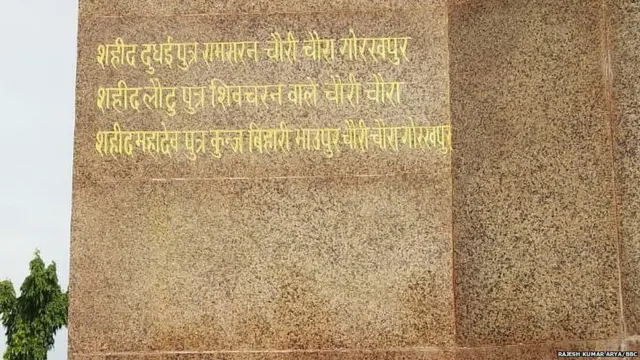 शहीद दुधई पुत्र रामसरन चौरी चौरा गोरखपुर
शहीद लौटु पुत्र शिवचरन वाले चौरी चौरा
शहीद महादेव पुत्र कुन्ज बिहारी भाउपुर चौरी चौरा गोरखपुर
RAJESH KUMAR ARYA/BBC